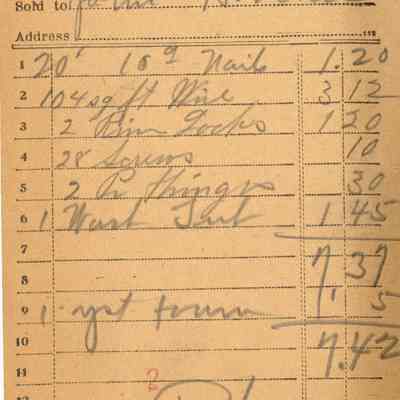 Sold to
Address
1 20' 16 g Nails 1.20
2 104 sq ft Wire 3 12
3 2 Rim Locks 1 20
4 28 Screws 10
5 2 Pr Hinges 30
6 1 1 45
7 7 37
8
9 1 5
10 7.42
11
2